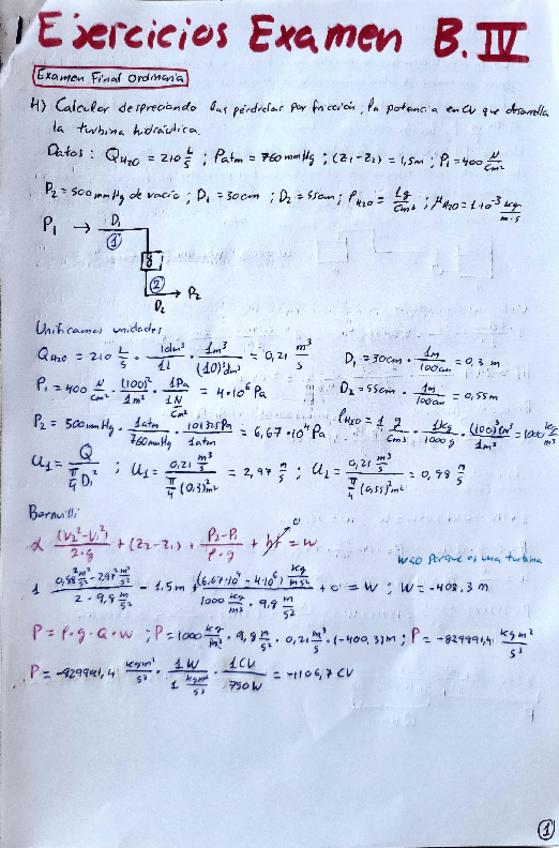 Ejercicios Examen B.IV
Examen Final Ordinaria
4) Calcular despreciando las pérdidas por fricción, la potencia en CV que desarrolla
la turbina hidráulica.
Datos : Q_H2O = 210 L/s ; Patm = 760 mmHg ; (Z1-Z2) = 1,5m ; P1 = 400 N/cm²
P2 = 500 mmHg de vacío ; D1 = 30cm ; D2 = 55cm ; ρH2O = 1g/cm³ ; μH2O = 1·10⁻³ kg/m·s
P1 → D1
①
②
→ P2
D2
Unificamos unidades
Q_H2O = 210 L/s · 1dm³/1L · 1m³/(10)³dm³ = 0,21 m³/s
D1 = 30cm · 1m/100cm = 0,3 m
P1 = 400 N/cm² · (100)²/1m² · 1Pa/1N/cm² = 4·10⁶ Pa
D2 = 55cm · 1m/100cm = 0,55m
P2 = 500 mmHg · 1atm/760mmHg · 101325Pa/1atm = 6,67·10⁴ Pa
ρH2O = 1 g/cm³ · 1kg/1000g · (100)³cm³/1m³ = 1000 kg/m³
U1 = Q/(π/4 D1²) ; U1 = 0,21 m³/s/(π/4 (0,3)² m²) = 2,97 m/s ; U2 = 0,21 m³/s/(π/4 (0,55)² m²) = 0,88 m/s
Bernuilli
α (V2²-V1²)/2·g + (Z2-Z1) + (P2-P1)/ρ·g + hf = W
0
W<0 porque es una turbina
1 (0,88² m²/s² - 2,97² m²/s²)/(2 · 9,8 m/s²) - 1,5m + (6,67·10⁴ - 4·10⁶) kg/ms²/(1000 kg/m³ · 9,8 m/s²) + 0 = W ; W = -403,3 m
P = ρ·g·Q·W ; P = 1000 kg/m³ · 9,8 m/s² · 0,21 m³/s · (-403,3)m ; P = -829991,4 kgm²/s³
P = -829991,4 kgm²/s³ · 1W/1 kgm²/s³ · 1CV/750W = -1106,7 CV
①